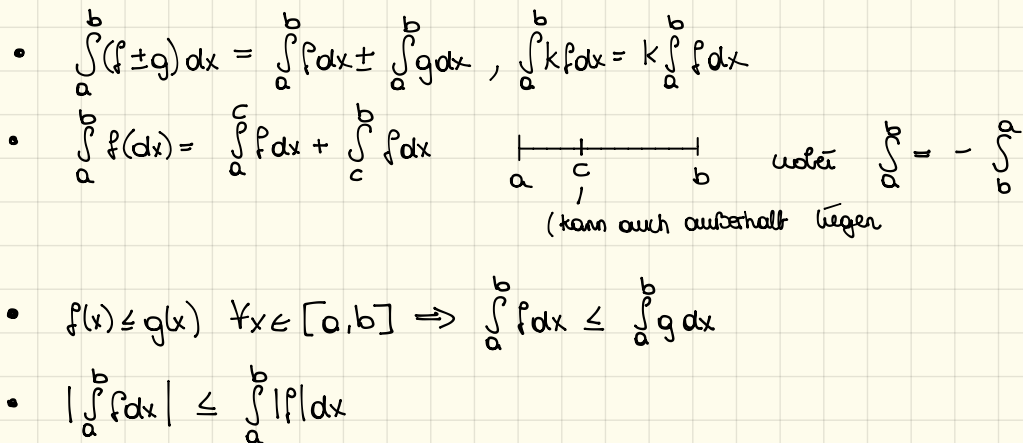 • ∫_a^b (f ± g) dx = ∫_a^b f dx ± ∫_a^b g dx , ∫_a^b k f dx = k ∫_a^b f dx
• ∫_a^b f(dx) = ∫_a^c f dx + ∫_c^b f dx a c b wobei ∫_a^b = - ∫_b^a
(kann auch außerhalb liegen
• f(x) ≤ g(x) ∀x ∈ [a,b] ⇒ ∫_a^b f dx ≤ ∫_a^b g dx
• |∫_a^b f dx| ≤ ∫_a^b |f| dx